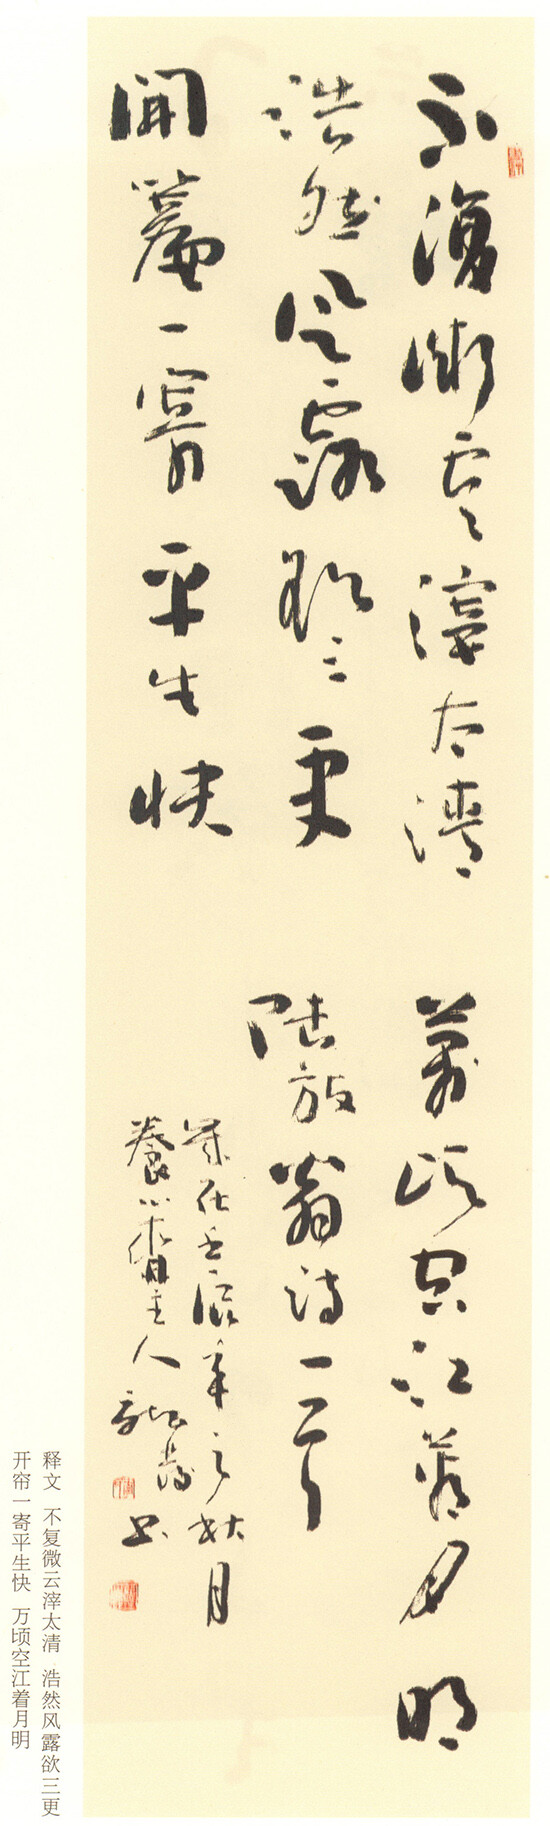 不復微雲滓太清
浩然風露欲三更
開簾一寄平生快
萬頃空江著月明
陸放翁詩一首
歲在壬辰年之秋月
養心齋主人 书
释文 不复微云滓太清 浩然风露欲三更
开帘一寄平生快 万顷空江着月明